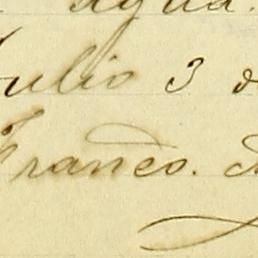 agua.
Julio 3 d
Franco.